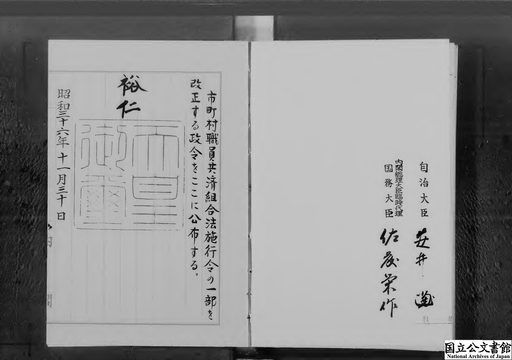 市町村職員共済組合法施行令の一部を
改正する政令をここに公布する。
裕仁
天皇
御璽
昭和三十六年十一月三十日
自治大臣 安井謙
内閣総理大臣臨時代理
国務大臣 佐藤栄作
国立公文書館
National Archives of Japan